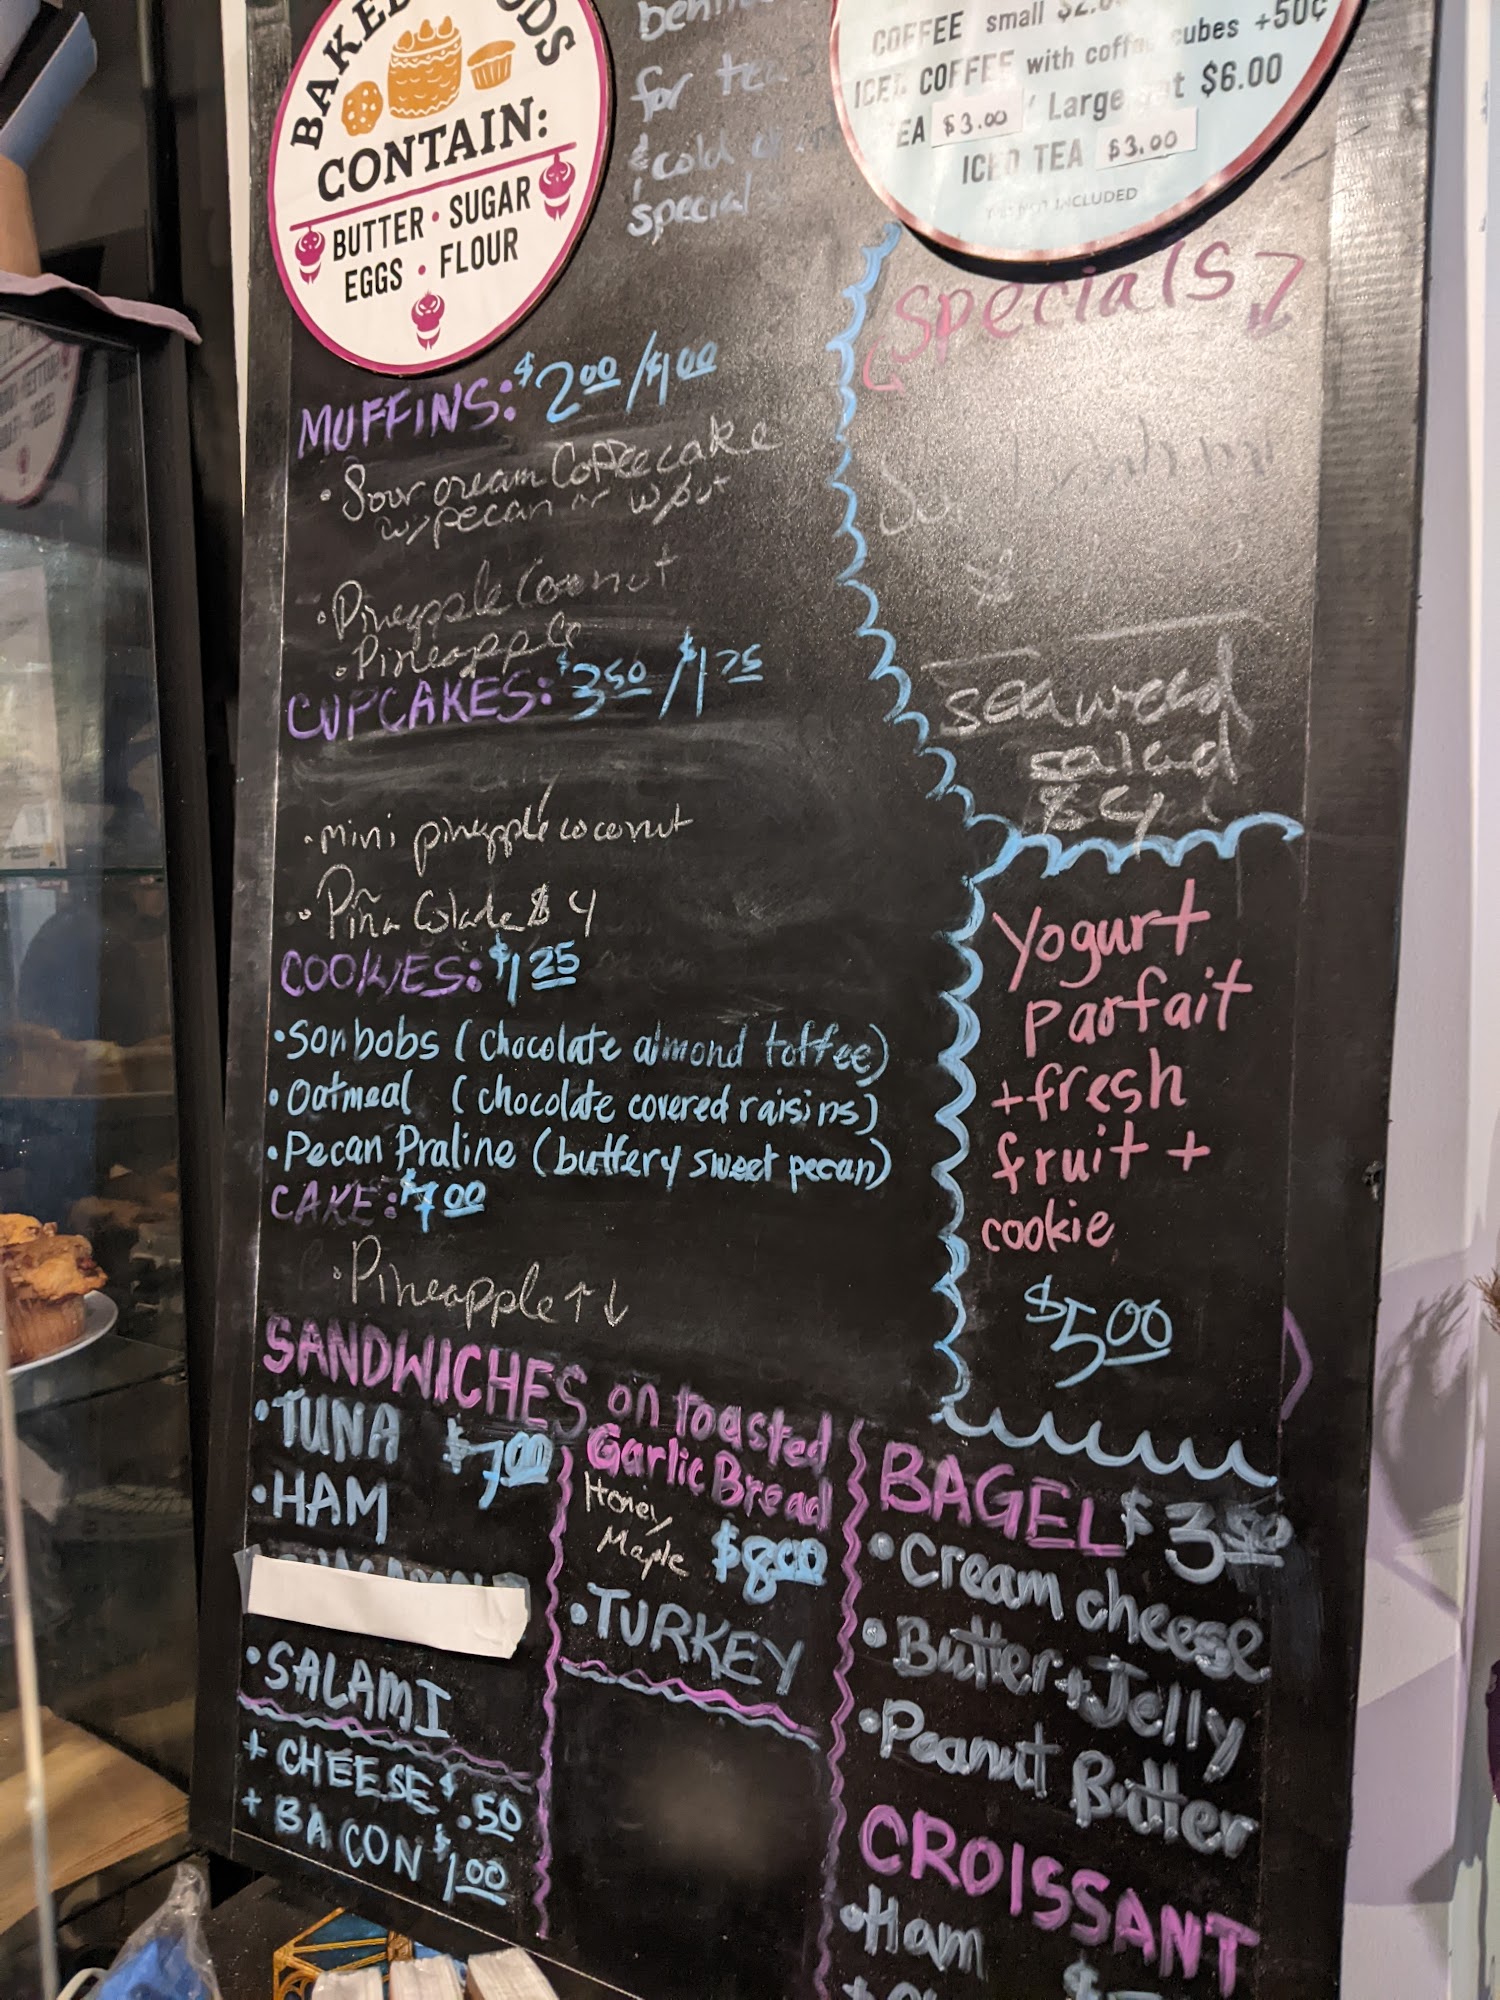 BAKED GOODS
CONTAIN:
BUTTER • SUGAR
EGGS • FLOUR
for tea
& cold
specials
COFFEE small
ICED COFFEE with coffee cubes +50¢
$3.00 Large $6.00
ICED TEA $3.00
NOT INCLUDED
MUFFINS: $2.00/$1.00
• Sour cream Coffeecake
w/pecan or w/out
• Pineapple Coconut
• Pineapple
CUPCAKES: $3.50/$1.75
• mini pineapple coconut
• Piña Colada $4
COOKIES: $1.25
• Sonbobs (chocolate almond toffee)
• Oatmeal (chocolate covered raisins)
• Pecan Praline (buttery sweet pecan)
CAKE: $7.00
• Pineapple ↑↓
Specials
seaweed
salad
Yogurt
parfait
+ fresh
fruit +
cookie
$5.00
SANDWICHES on toasted
Garlic Bread
• TUNA $7.00
• HAM
• SALAMI
+ CHEESE $.50
+ BACON $1.00
Honey
Maple $8.00
• TURKEY
BAGEL $3.50
• Cream cheese
• Butter + Jelly
• Peanut Butter
CROISSANT
• Ham